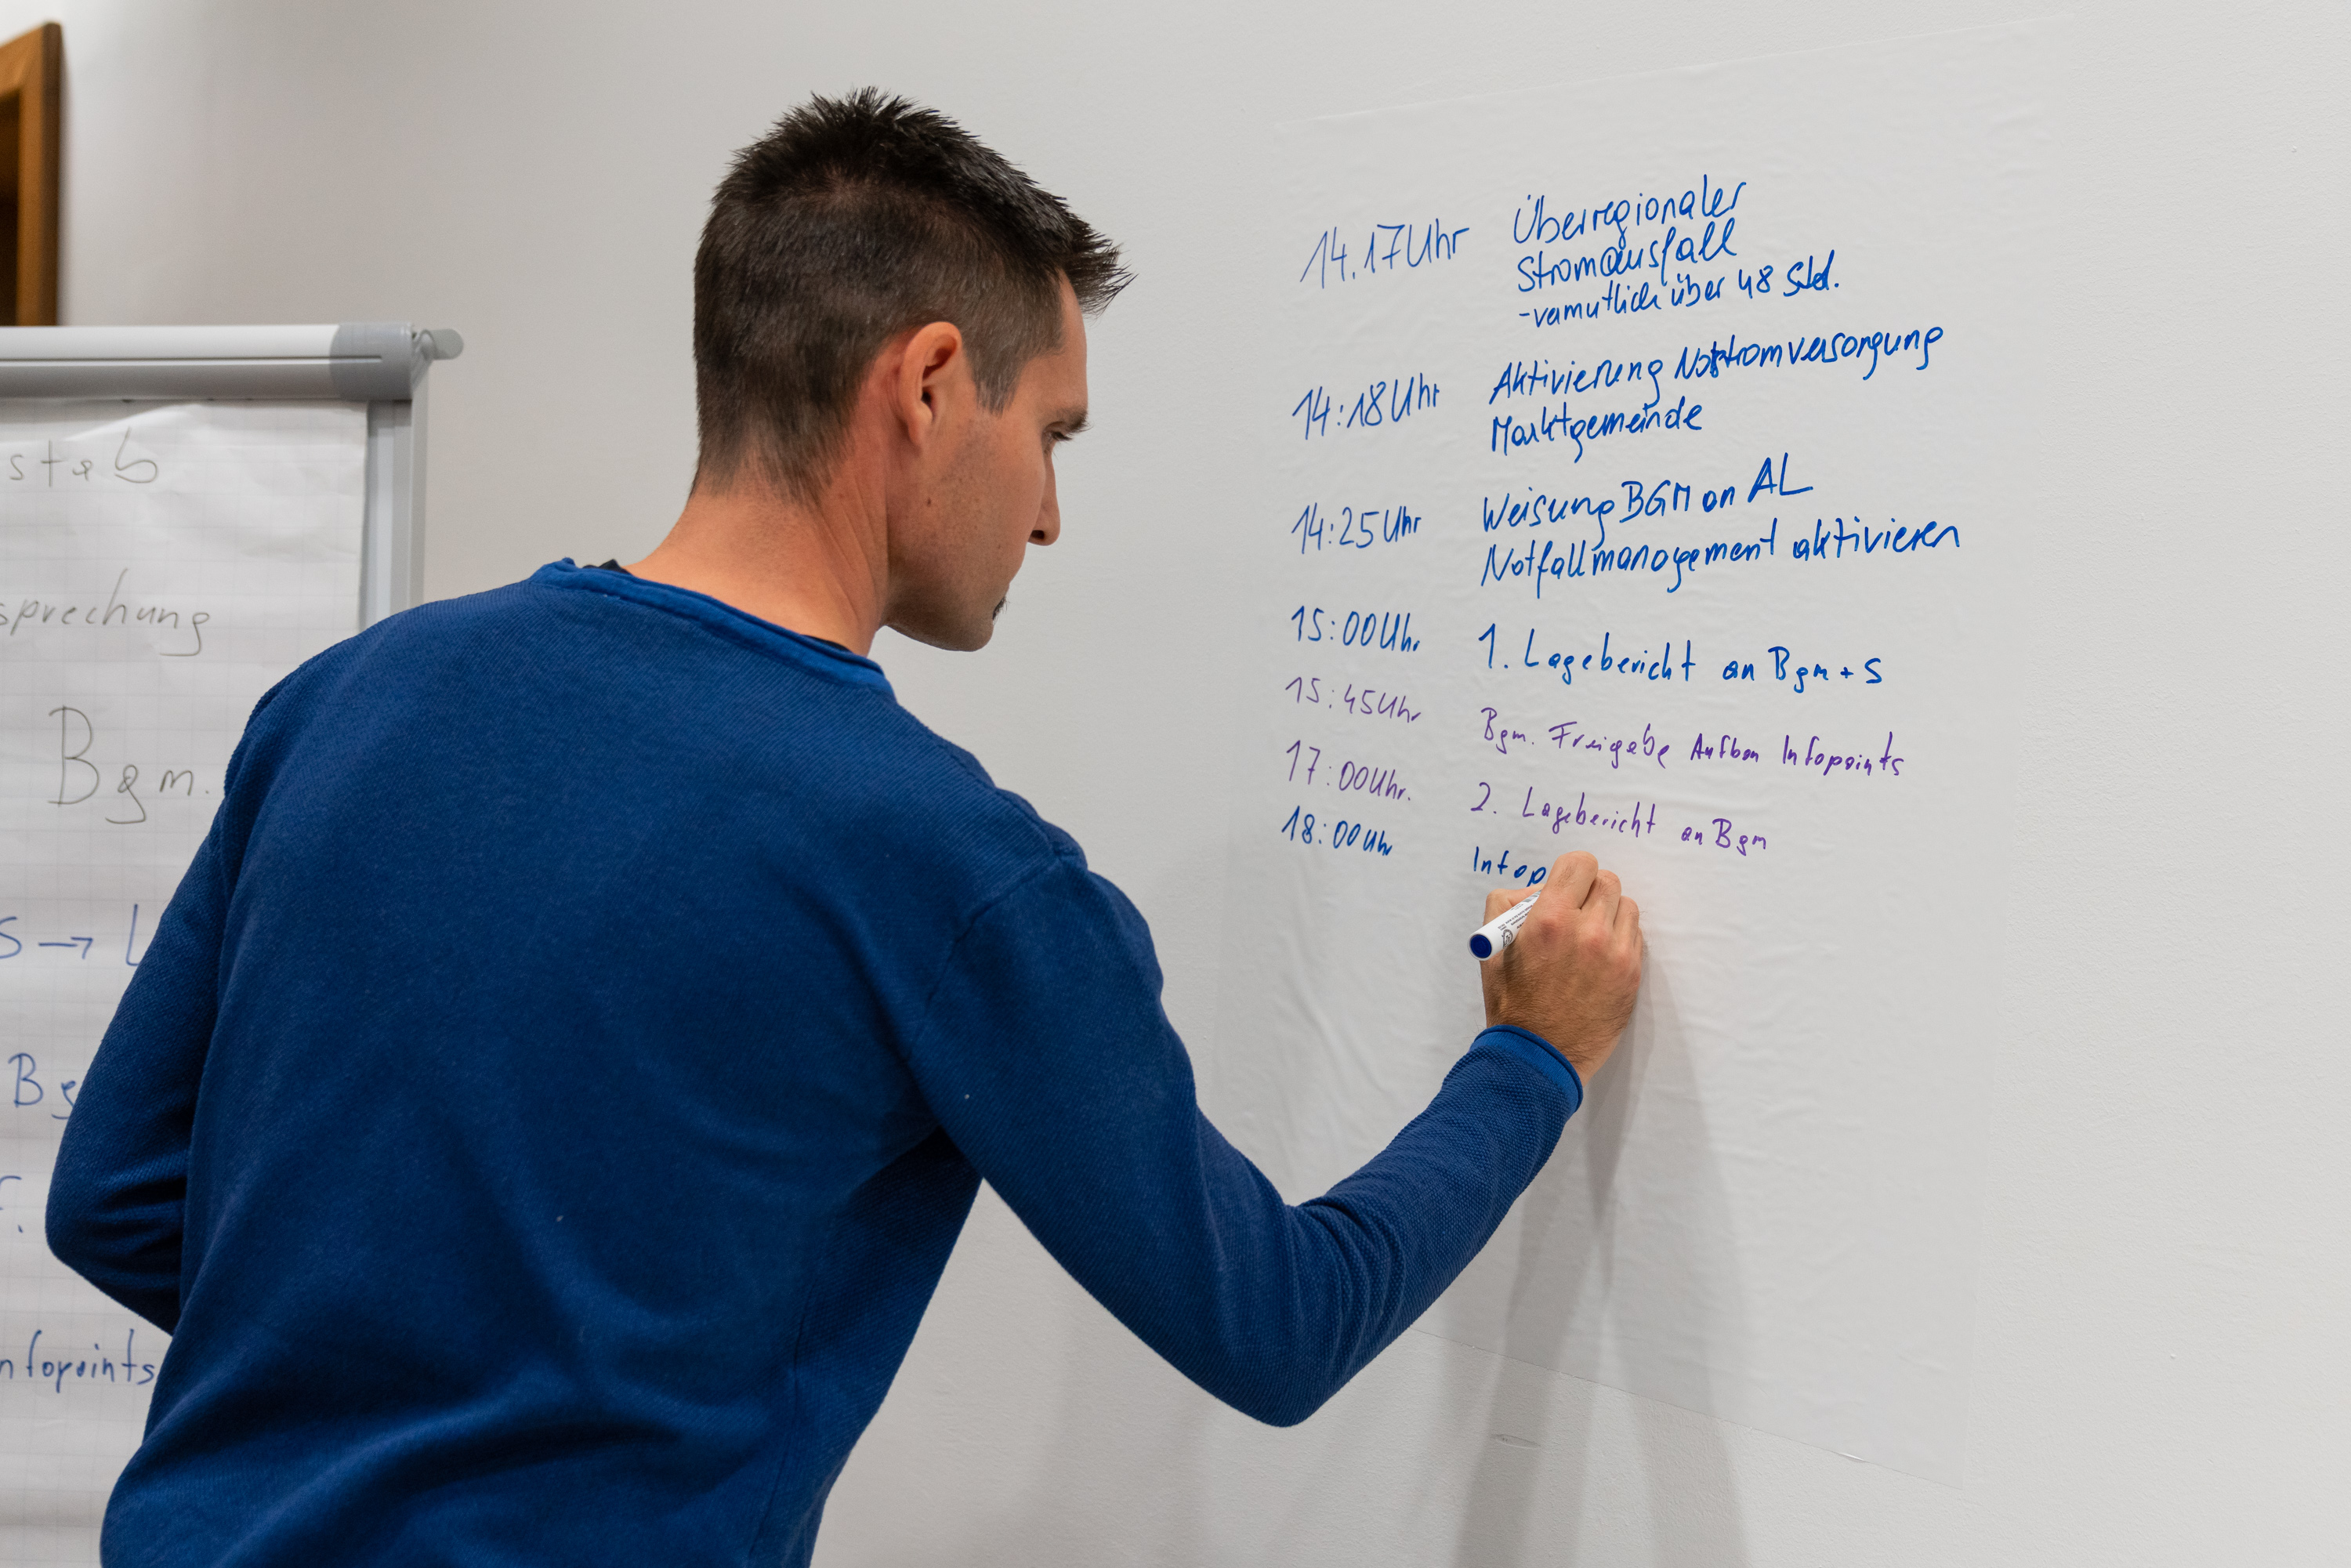 stab
sprechung
Bgm.
S → L
Bg
f.
nfopoints
14.17Uhr Überregionaler
Stromausfall
- vamutlich über 48 Std.
14:18Uhr Aktivierung Notstromversorgung
Marktgemeinde
14:25Uhr Weisung BGM an AL
Notfallmanagement aktivieren
15:00Uhr 1. Lagebericht an Bgm + S
15:45Uhr Bgm. Freigabe Aufbau Infopoints
17:00Uhr. 2. Lagebericht an Bgm
18:00Uhr Infop